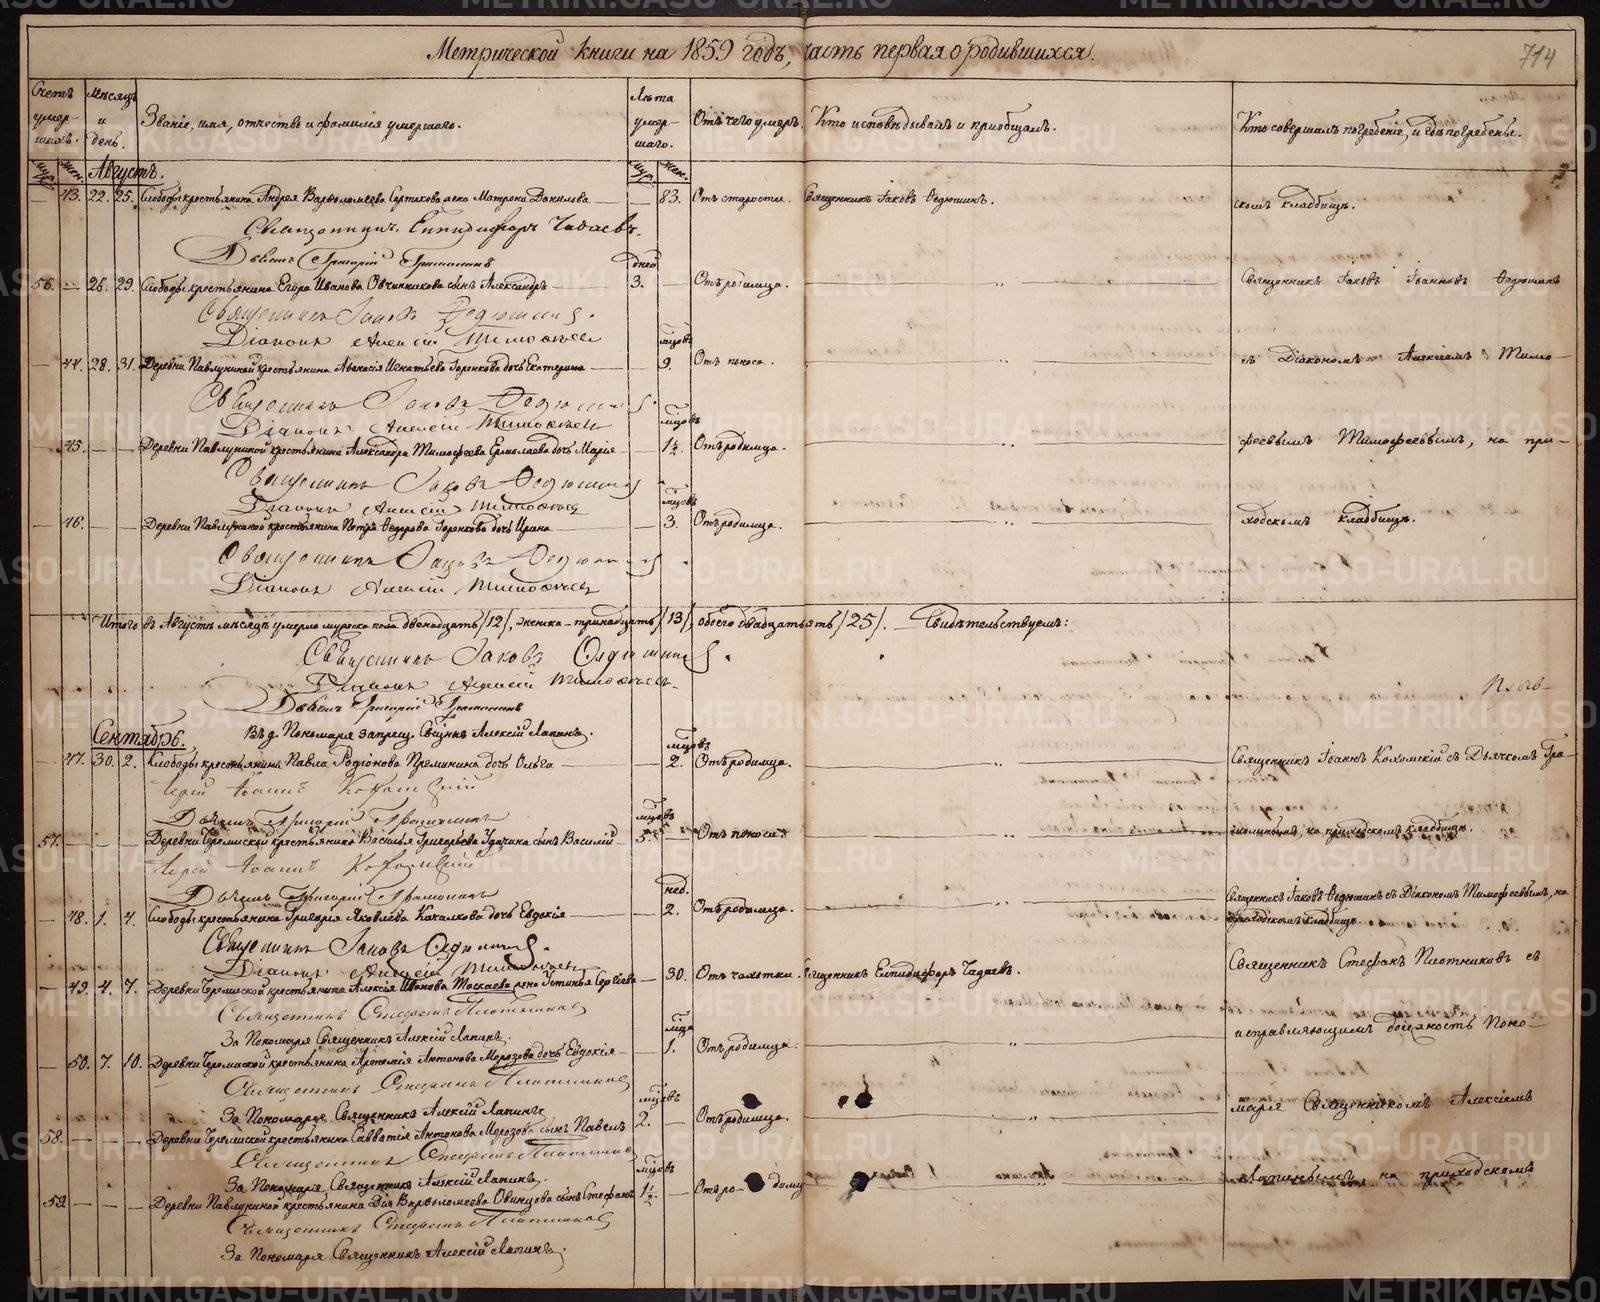 Метрической книги на 1859 годъ, часть первая о родившихся.
714
Счетъ умер-шихъ.
Мѣсяцъ и день.
Званіе, имя, отчество и фамилія умершаго.
Лѣта умер-шаго.
Отъ чего умеръ.
Кто исповѣдывалъ и пріобщалъ.
Кто совершалъ погребеніе, и гдѣ погребены.
муж. жен. Августъ. муж. жен.
43. 22. 25. Слободы крестьянина Андрея Варѳоломеева жена Матрона Данилова 83. Отъ старости. Священникъ Іаковъ Ѳедюшинъ. скомъ кладбищѣ.
Священникъ Елпидифоръ Чадаевъ.
Дьячекъ Григорій
дней
56. 26. 29. Слободы крестьянина Егора Иванова Овчинникова сынъ Александръ 3. Отъ родимца. Священникъ Іаковъ Іоанновъ Ѳедюшинъ
Священникъ Іаковъ Ѳедюшинъ.
Діаконъ Алексій Тимофѣевъ
мѣсяцовъ
44. 28. 31. Деревни Павлуниной крестьянина Аѳанасія Игнатьева Горенкова дочь Екатерина 9. Отъ поноса. съ Діакономъ Алексіемъ Тимо-
Священникъ Іаковъ Ѳедюшинъ.
Діаконъ Алексій Тимофѣевъ
мѣсяцовъ
45. Деревни Павлуниной крестьянина Александра Тимофеева Ермолаева дочь Марія 1½. Отъ родимца. феевымъ Тимофеевымъ, на при-
Священникъ Іаковъ Ѳедюшинъ
Діаконъ Алексій Тимофѣевъ
мѣсяцовъ
46. Деревни Павлуниной крестьянина Петра Ѳедорова Горенкова дочь Ирина 3. Отъ родимца. ходскомъ кладбищѣ.
Священникъ Іаковъ Ѳедюшинъ.
Діаконъ Алексій Тимофѣевъ
Итого въ Августѣ мѣсяцѣ умерло мужеска пола двенадцать /12/, женска - тринадцать /13/, обоего двадцать пять /25/. Свидѣтельствуемъ:
Священникъ Іаковъ Ѳедюшинъ.
Діаконъ Алексій Тимофѣевъ.
Дьячекъ Григорій
Въ д. Пономаря запрещ. Свщнкъ Алексій Лапинъ.
Сентябрь.
мѣсяцовъ
47. 30. 2. Слободы крестьянина Павла Родіонова Преминина дочь Ольга 2. Отъ родимца. Священникъ Іоаннъ Кохомскій съ Дьячкомъ Гра-
Іерей Іоаннъ Кохомскій
Дьячекъ Григорій
мѣсяцовъ
57. Деревни Черемисской крестьянина Василья Григорьева Удачина сынъ Василій 5. Отъ поноса. на приходскомъ кладбищѣ.
Іерей Іоаннъ Кохомскій
Дьячекъ Григорій
нед.
48. 1. 4. Слободы крестьянина Григорія Яковлева Качалкова дочь Евдокія 2. Отъ родимца. Священникъ Іаковъ Ѳедюшинъ съ Діакономъ Тимофеевымъ, на приходскомъ кладбищѣ.
Священникъ Іаковъ Ѳедюшинъ.
Діаконъ Алексій Тимофѣевъ
49. 4. 7. Деревни Черемисской крестьянина Алексія Иванова Тоскаева жена Устинья Сергѣева 30. Отъ чахотки. Священникъ Елпидифоръ Чадаевъ. Священникъ Стефанъ Плотниковъ съ
Священникъ Стефанъ Плотниковъ
За Пономаря Священникъ Алексій Лапинъ.
исправляющимъ должность Поно-
мѣсяца
50. 7. 10. Деревни Черемисской крестьянина Артемія Антонова Морозова дочь Евдокія 1. Отъ родимца.
Священникъ Стефанъ Плотниковъ
За Пономаря Священникъ Алексій Лапинъ.
мѣсяцовъ
58. Деревни Черемисской крестьянина Савватія Антонова Морозова сынъ Павелъ 2. Отъ родимца. маря Священникомъ Алексіемъ
Священникъ Стефанъ Плотниковъ
За Пономаря Священникъ Алексій Лапинъ.
мѣсяцовъ
59. Деревни Павлуниной крестьянина Варѳоломеева Овинцова сынъ Стефанъ 1½. Отъ ро- Лапинымъ, на приходскомъ
Священникъ Стефанъ Плотниковъ
За Пономаря Священникъ Алексій Лапинъ.
METRIKI.GASO-URAL.RU